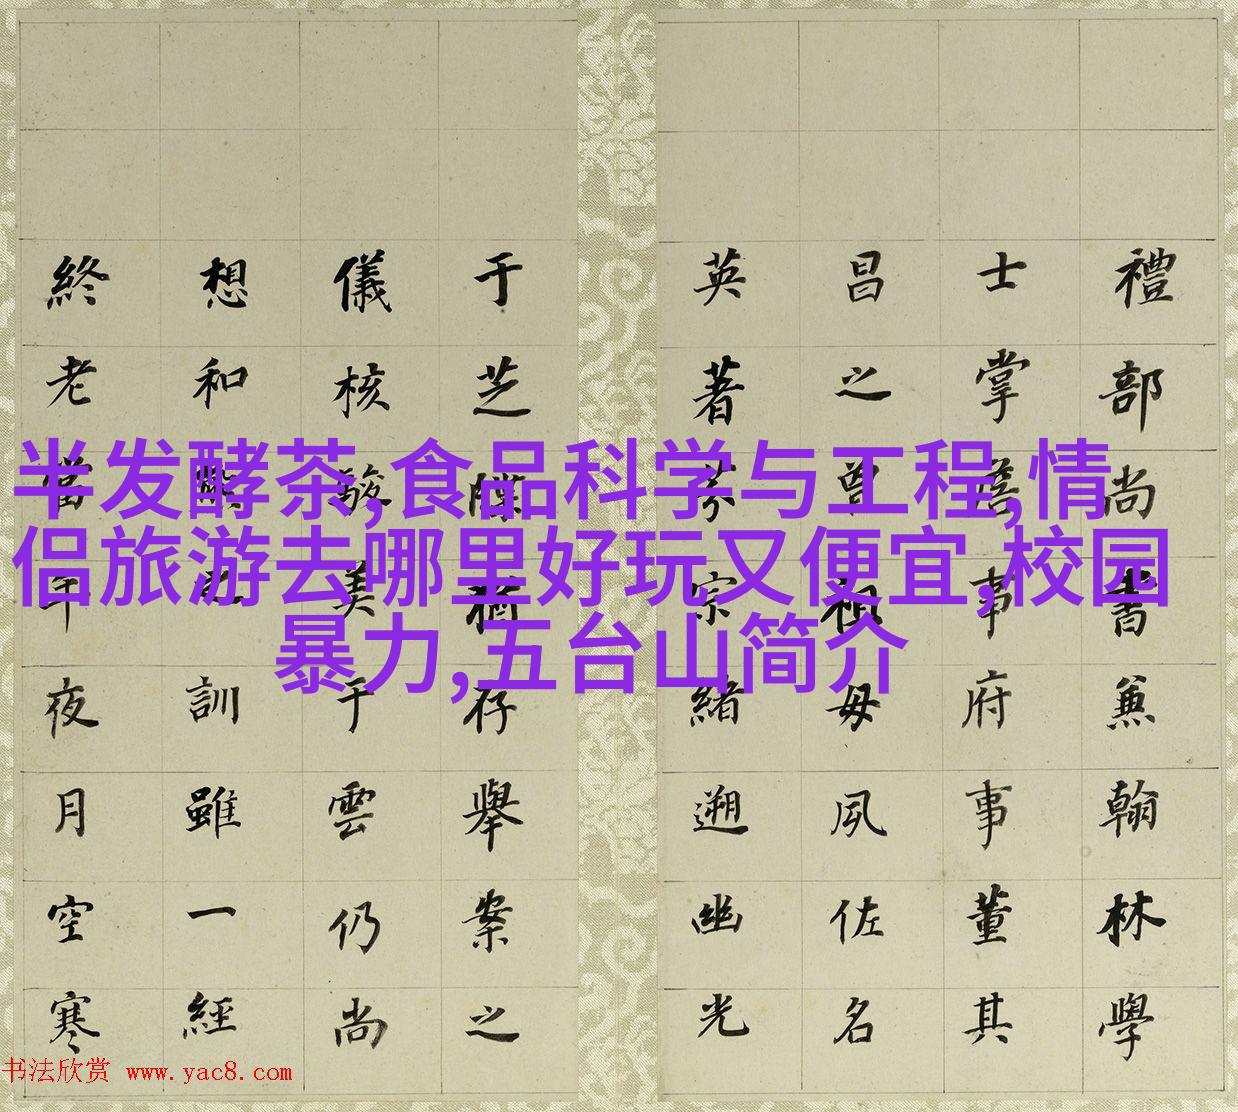 禮部尚書兼翰林學
士掌詹事府事董其
昌之曾祖母夙佐名
英著芬宗緒遡幽光
于芝牒猶存舉案之
儀核駿美于雲仍尚
想和熊之訓雖一經
終老當年夜月空寒
半发酵茶,食品科学与工程,情
侣旅游去哪里好玩又便宜,校园
暴力,五台山简介
书法欣赏 www.yac8.com